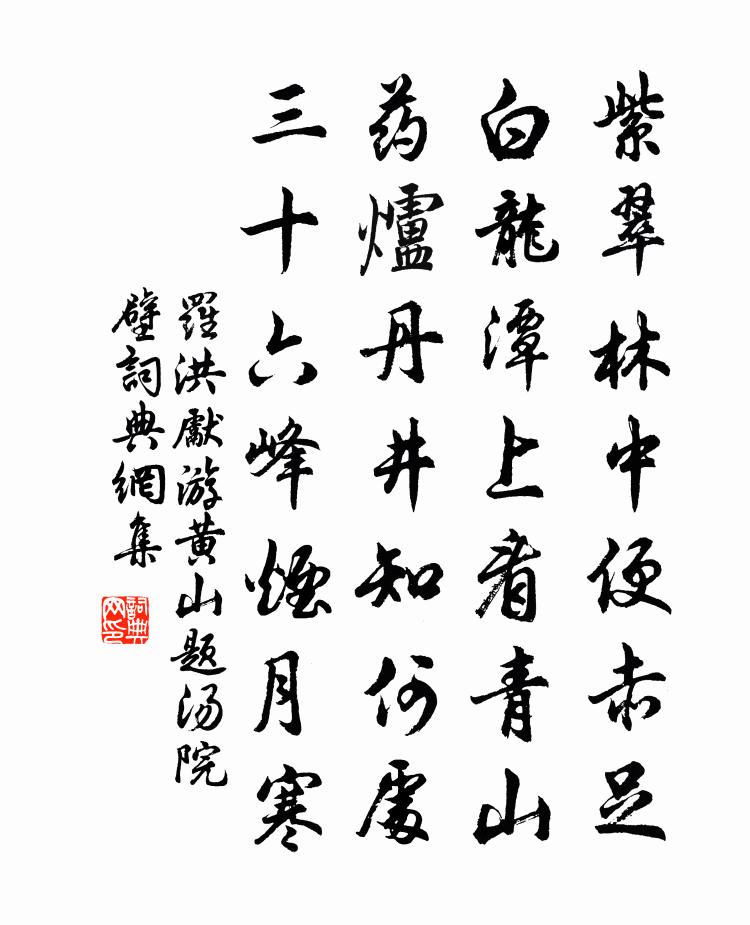 紫翠林中便赤足
白龍潭上看青山
药爐丹井知何處
三十六峰煙月寒
羅洪獻游黄山题汤院
壁詞典網集
詞典网印